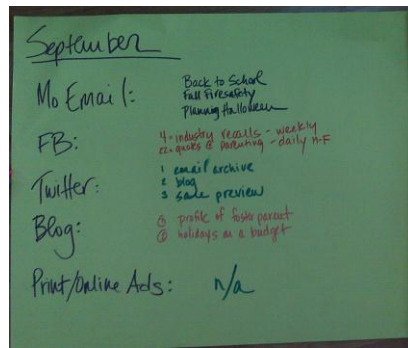 September
Mo Email:
Back to School
Fall Firesafety
Planning Halloween
FB:
4 - industry recalls - weekly
22 - quotes @ parenting - daily M-F
Twitter:
1 email archive
2 blog
3 sale preview
Blog:
① profile of foster parent
② holidays on a budget
Print/Online Ads: n/a